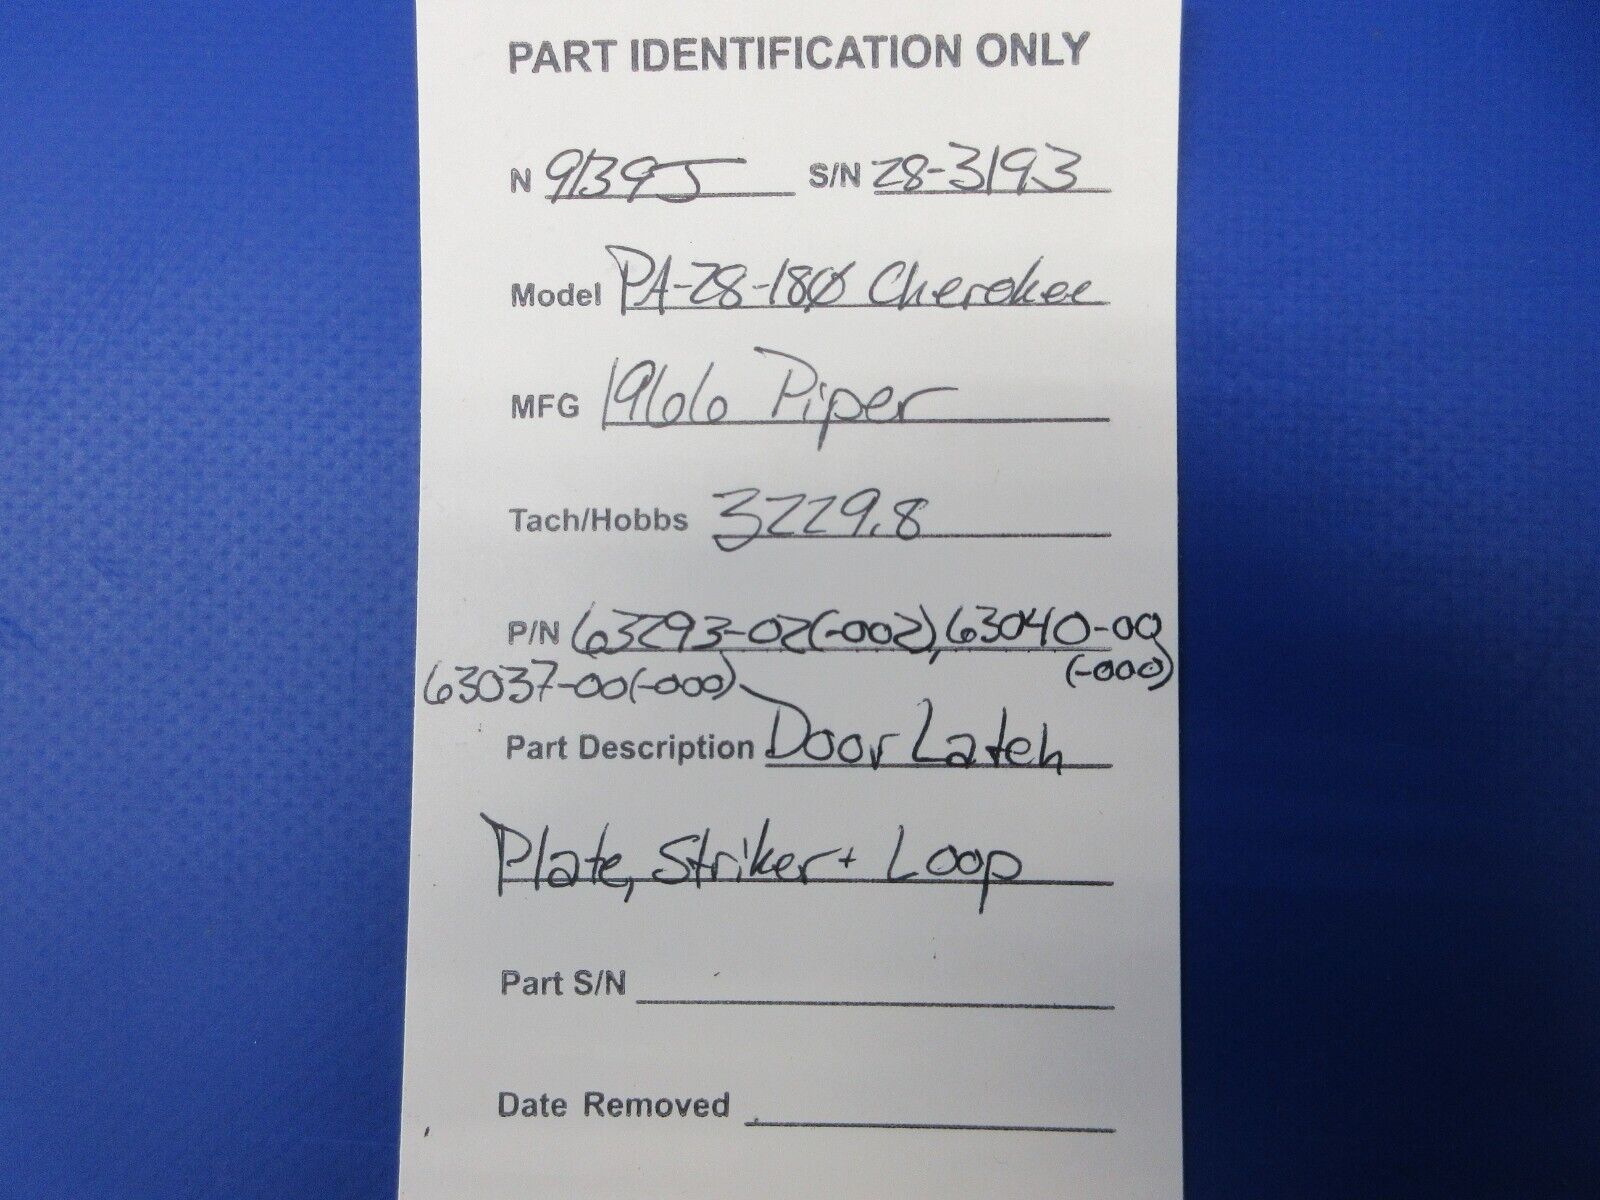 PART IDENTIFICATION ONLY
N 9139J S/N 28-3193
Model PA-28-180 Cherokee
MFG 1966 Piper
Tach/Hobbs 3229.8
P/N 63293-02(-002), 63040-00
(-000)
63037-00(-000)
Part Description Door Latch
Plate, Striker + Loop
Part S/N
Date Removed